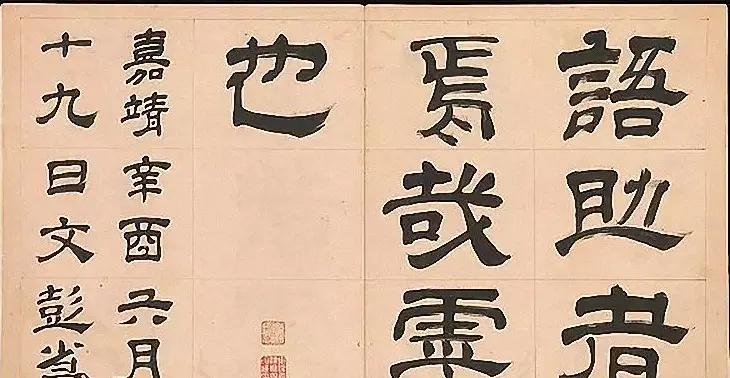 語助者
焉哉
也
嘉靖辛酉六月
十九日文彭